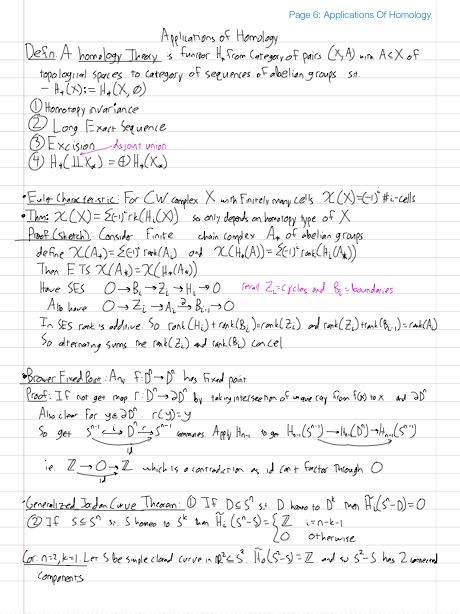 Page 6: Applications Of Homology
Applications of Homology
Defn. A homology Theory is functor H* from category of pairs (X,A) with A⊂X of
topological spaces to category of sequences of abelian groups s.t.
- H*(X) := H*(X, ∅)
① Homotopy invariance
② Long Exact Sequence
③ Excision disjoint union
④ H*(∐Xα) = ⊕H*(Xα)
• Euler Characteristic: For CW complex X with finitely many cells χ(X)=(-1)^i #i-cells
• Thm: χ(X) = Σ(-1)^i rk(Hi(X)) so only depends on homotopy type of X
Proof (sketch): Consider Finite chain complex A* of abelian groups
define χ(A*) = Σ(-1)^i rank(Ai) and χ(H*(A)) = Σ(-1)^i rank(Hi(A*))
Then ETS χ(A*) = χ(H*(A*))
Have SES 0→Bi→Zi→Hi→0 recall Zi=cycles and Bi=boundaries
Also have 0→Zi→Ai→∂ Bi-1→0
In SES rank is additive. So rank(Hi)+rank(Bi)=rank(Zi) and rank(Zi)+rank(Bi-1)=rank(Ai)
So alternating sums the rank(Zi) and rank(Bi) cancel
• Brower Fixed Point: Any f: D^n→D^n has fixed point
Proof: If not get map r: D^n→∂D^n by taking intersection of unique ray from f(x) to x and ∂D^n
Also clear for y∈∂D^n r(y)=y
So get S^n-1 →i D^n →r S^n-1 commutes. Apply Hn-1 to get Hn-1(S^n-1)→Hn-1(D^n)→Hn-1(S^n-1)
id id
i.e. ℤ→0→ℤ which is a contradiction as id can't factor through 0
id
• Generalized Jordan Curve Theorem: ① If D⊆S^n s.t. D homeo to D^k then H̃i(S^n-D)=0
② If S⊆S^n s.t. S homeo to S^k then H̃i(S^n-S) = { ℤ i=n-k-1
0 otherwise
Cor: n=2, k=1. Let S be simple closed curve in ℝ²⊆S². H̃0(S²-S)=ℤ and so S²-S has 2 connected
components